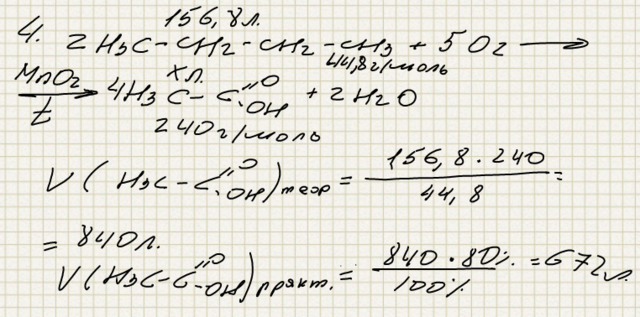 156,8л.
4. 2 H₃C – CH₂ – CH₂ – CH₃ + 5O₂ →
44,8г/моль
MnO₂ хл.
t → 4H₃C – C=O OH + 2H₂O
240г/моль
V (H₃C – C=O OH) теор = 156,8 · 240 / 44,8 =
= 840л.
V (H₃C – C=O –OH) практ. = 840 · 80% / 100% = 672л.